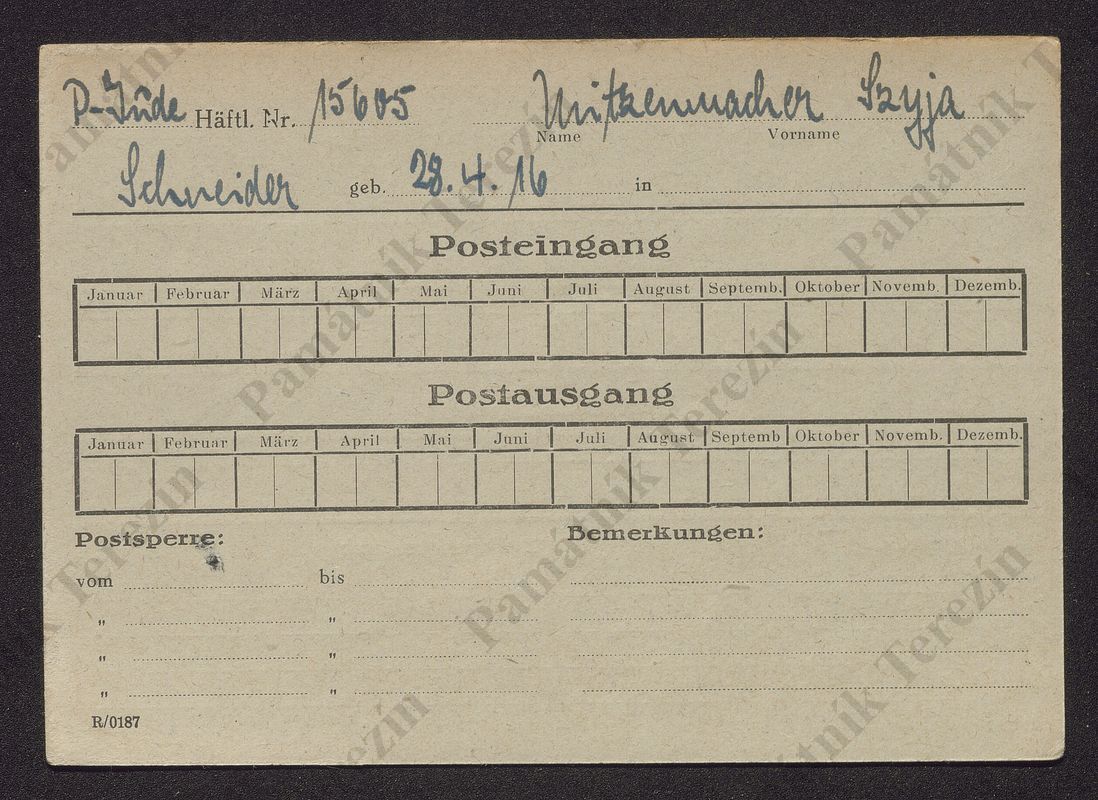 P-Jude Häftl. Nr. 15605 Mitzenmacher Szyja
Name Vorname
Schneider geb. 28.4./16 in
Posteingang
Januar Februar März April Mai Juni Juli August Septemb. Oktober Novemb. Dezemb.
Postausgang
Januar Februar März April Mai Juni Juli August Septemb Oktober Novemb. Dezemb.
Postsperre: Bemerkungen:
vom bis
" "
" "
" "
R/0187
Památník Terezín